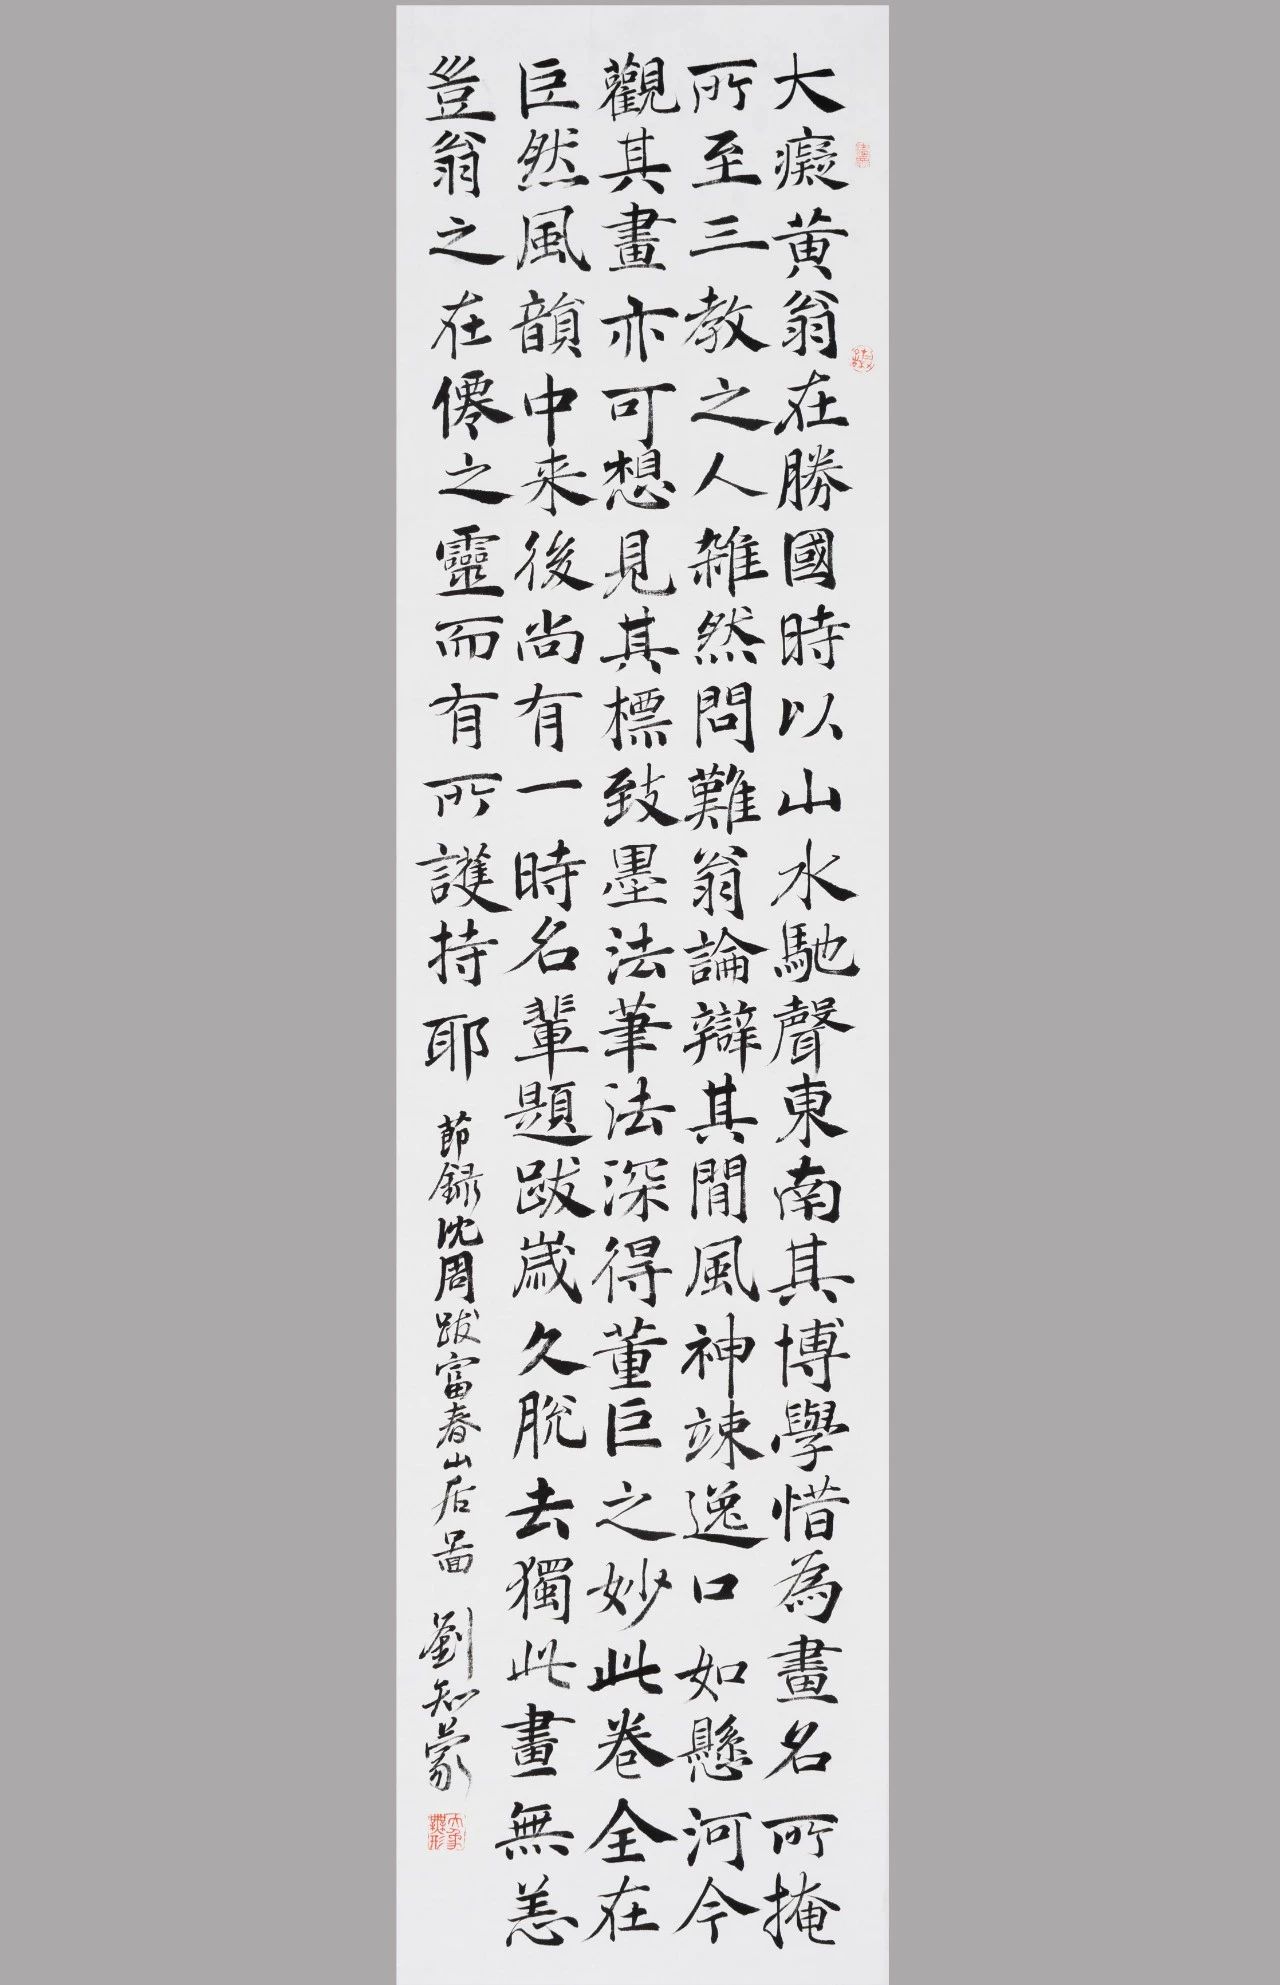 大癡黄翁在勝國時以山水馳聲東南其博學惜為畫名所掩
所至三教之人雜然問難翁論辯其間風神竦逸口如懸河今
觀其畫亦可想見其標致墨法筆法深得董巨之妙此卷全在
巨然風韻中来後尚有一時名輩題跋歲久脫去獨此畫無恙
豈翁之在僊之靈而有所護持耶 節録沈周跋富春山居圖 劉知蒙
大象無形